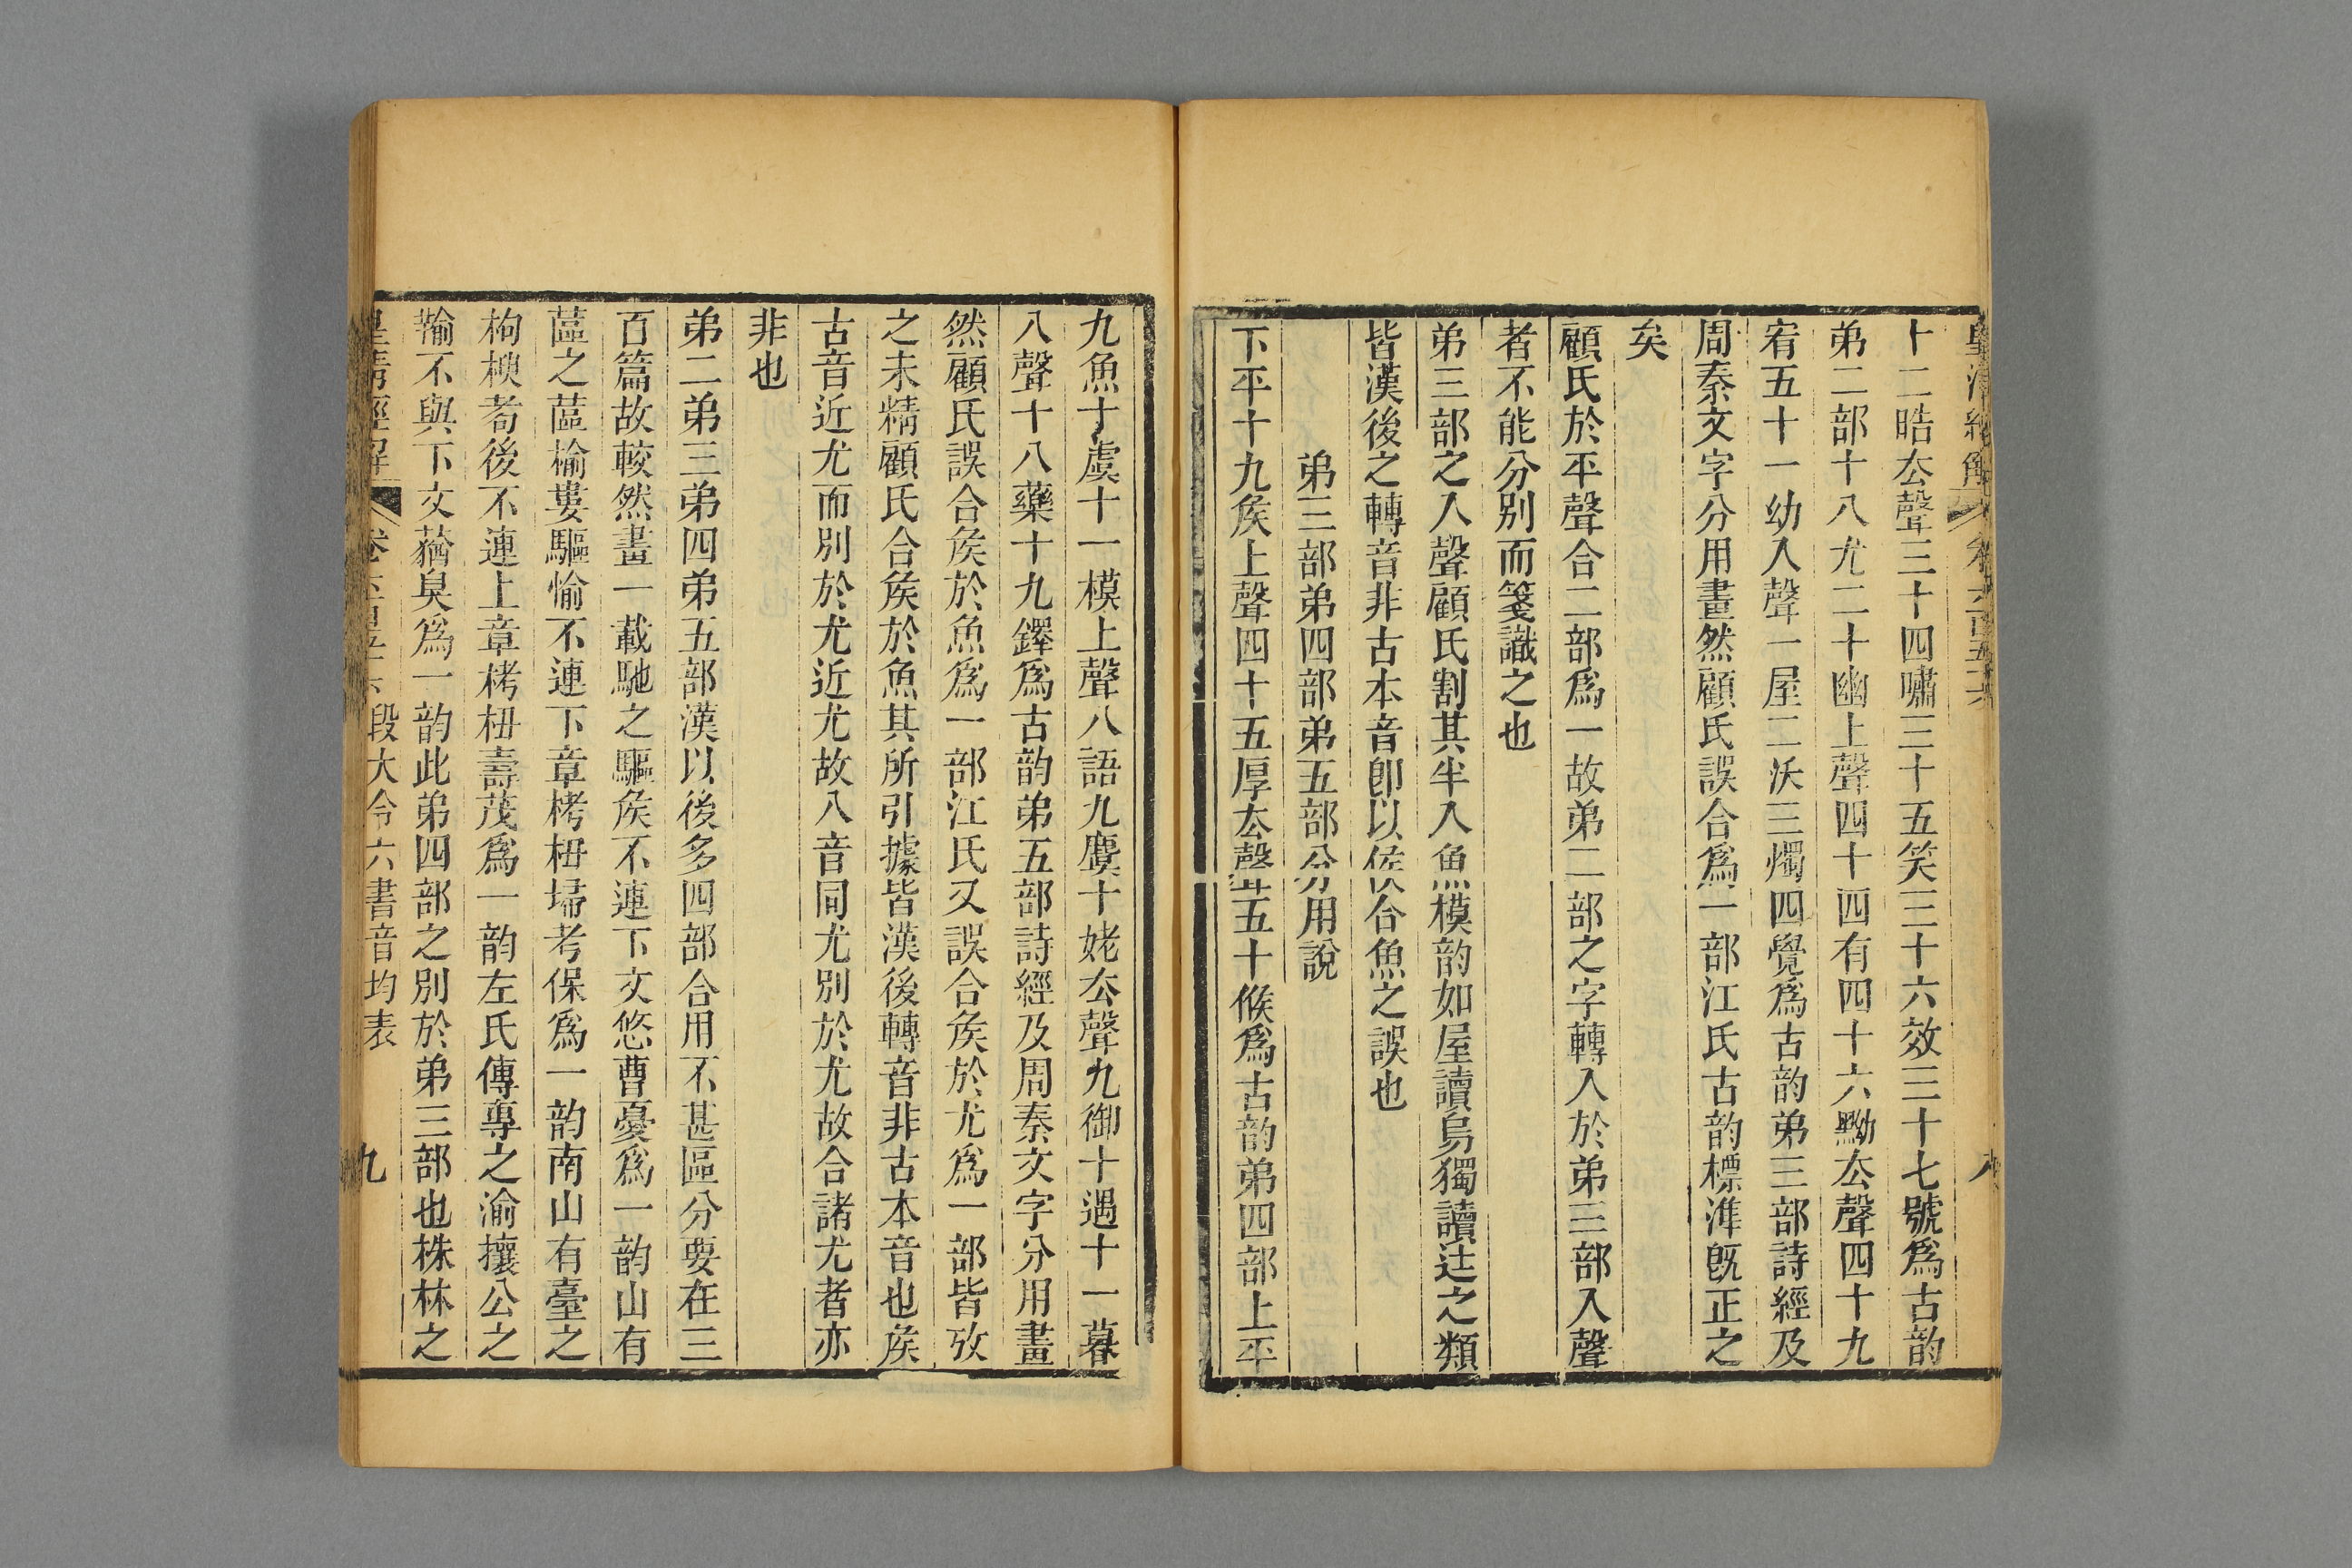 皇清經解 卷六百五十六 八
十二晧厺聲三十四嘯三十五笑三十六效三十七號爲古韵
弟二部十八尤二十幽上聲四十四有四十六黝厺聲四十九
宥五十一幼入聲一屋二沃三燭四覺爲古韵弟三部詩經及
周秦文字分用畫然顧氏誤合爲一部江氏古韵標準旣正之
矣
顧氏於平聲合二部爲一故弟二部之字轉入於弟三部入聲
者不能分別而箋識之也
弟三部之入聲顧氏割其半入魚模韵如屋讀烏獨讀迬之類
皆漢後之轉音非古本音卽以侯合魚之誤也
弟三部弟四部弟五部分用說
下平十九矦上聲四十五厚厺聲五十候爲古韵弟四部上平
九魚十虞十一模上聲八語九麌十姥厺聲九御十遇十一暮
入聲十八藥十九鐸爲古韵弟五部詩經及周秦文字分用畫
然顧氏誤合矦於魚爲一部江氏又誤合矦於尤爲一部皆攷
之未精顧氏合矦於魚其所引據皆漢後轉音非古本音也矦
古音近尤而別於尤近尤故入音同尤別於尤故合諸尤者亦
非也
弟二弟三弟四弟五部漢以後多四部合用不甚區分要在三
百篇故較然畫一載馳之驅矦不連下文悠曹憂爲一韵山有
蓲之蓲榆婁驅愉不連下章栲杻埽考保爲一韵南山有臺之
枸楰耇後不連上章栲杻壽茂爲一韵左氏傳專之渝攘公之
羭不與下文蕕臭爲一韵此弟四部之別於弟三部也株林之
皇淸經解 卷六百五十六 段大令六書音均表 九